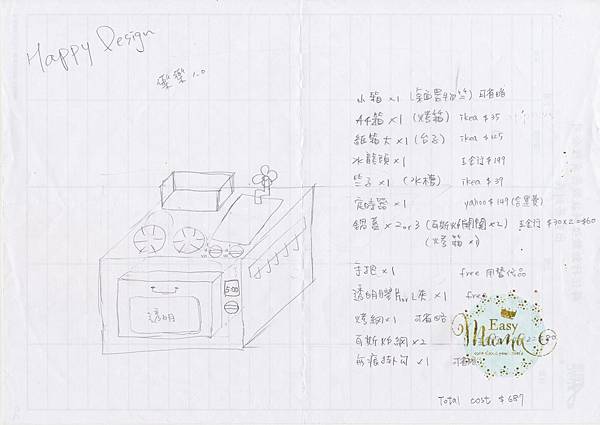 Happy Design
樂樂 1.0
小箱 ×1 ( 可省略
A4箱 ×1 (烤箱) ikea $35
紙箱大 ×1 (台子) ikea $125
水龍頭 ×1 五金行 $199
×1 (水槽) ikea $39
定時器 ×1 yahoo $149 (含運費)
鍋蓋 ×2 or 3 (瓦斯爐開關×2) 五金行 $30×2=$60
(烤箱 ×1)
手把 ×1 free 用替代品
透明膠片 or L夾 ×1 free
烤網×1 可省略
瓦斯爐網 ×2
無痕掛勾 ×1
Total cost $687
5:00
透明
Easy
Mama